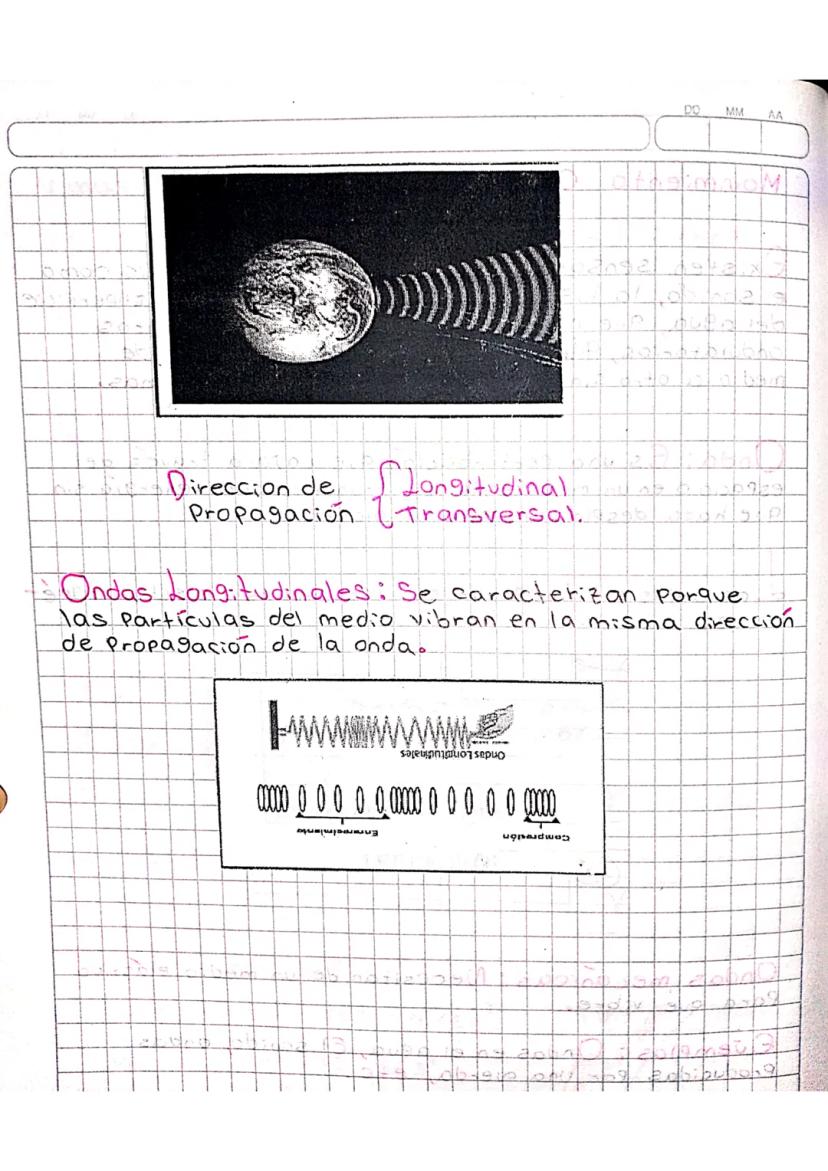 DD MM AA
Direccion de { Longitudinal
Propagación { Transversal.
Ondas Longitudinales: Se caracterizan porque
las Partículas del medio vibran en la misma dirección
de Propagación de la onda.
Ondas Longitudinales
Enrarecimiento
Compresión